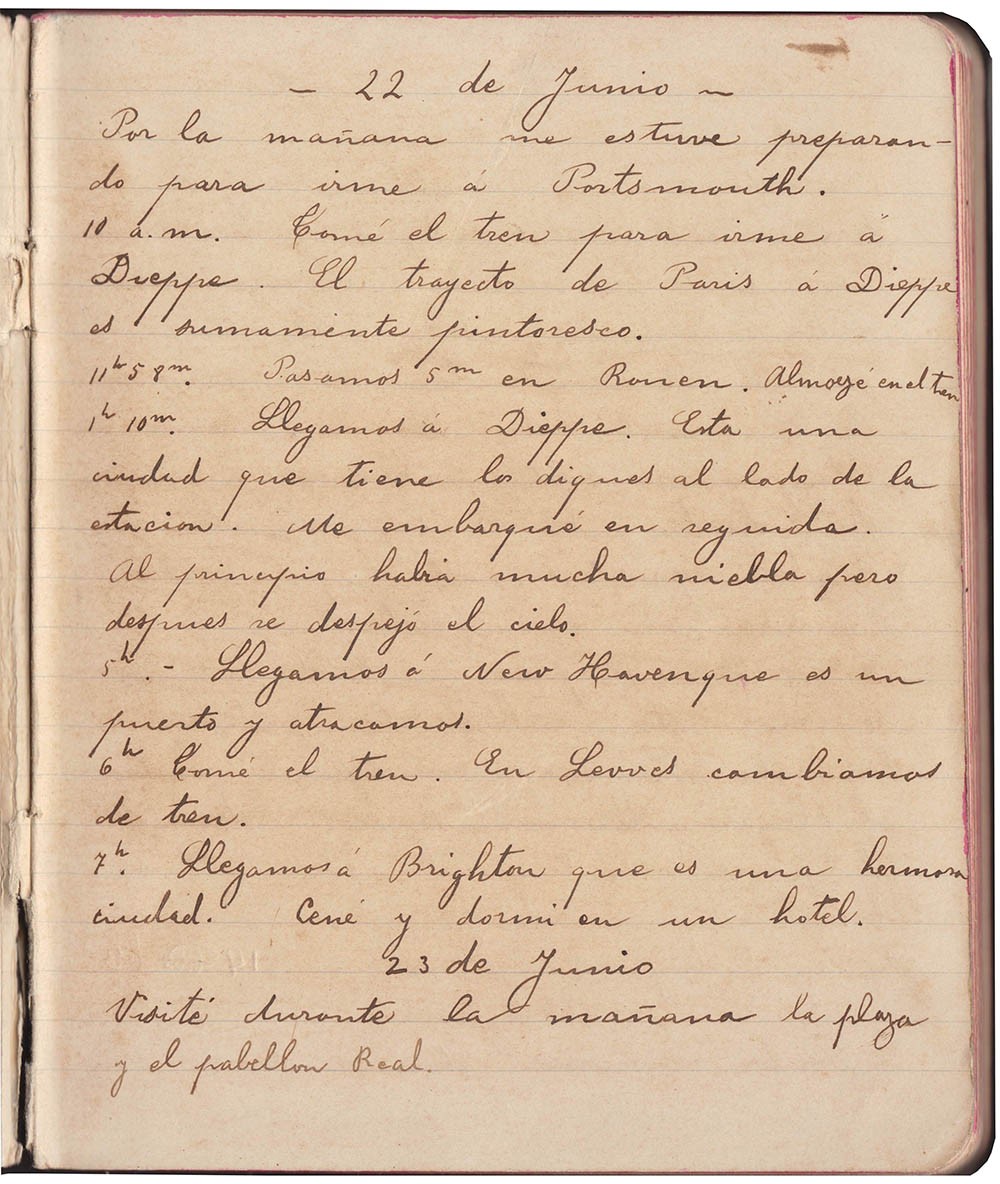 – 22 de Junio –
Por la mañana me estuve preparan-
do para irme á Portsmouth.
10 a.m. Tomé el tren para irme á
Dieppe. El trayecto de Paris á Dieppe
es sumamente pintoresco.
11h 58m. Pasamos 5m en Rouen. Almorzé en el tren
1h 10m. Llegamos á Dieppe. Esta una
ciudad que tiene los diques al lado de la
estacion. Me embarqué en seguida.
Al principio habia mucha niebla pero
despues se despejó el cielo.
5h. - Llegamos á New Haven que es un
puerto y atracamos.
6h Tomé el tren. En Lewes cambiamos
de tren.
7h. Llegamos á Brighton que es una hermosa
ciudad. Cené y dormi en un hotel.
23 de Junio
Visité durante la mañana la plaza
y el pabellon Real.